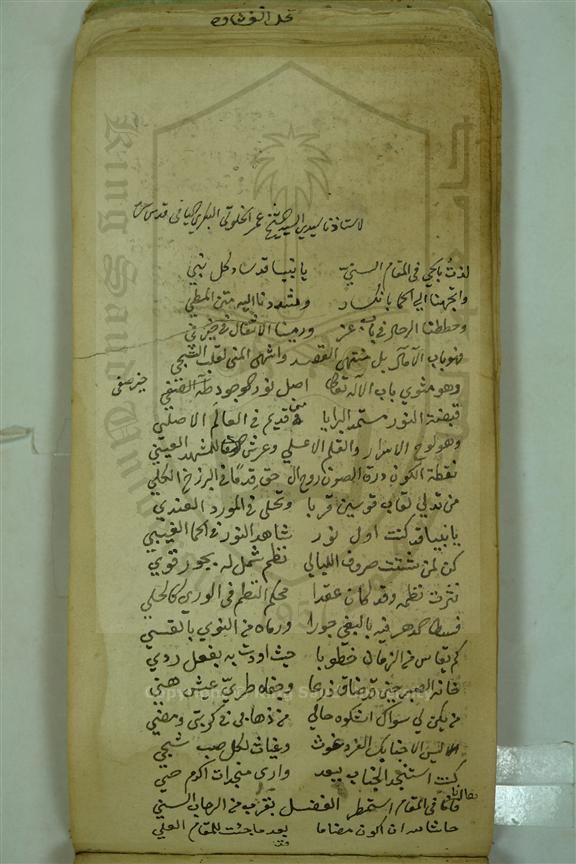 لاستاذنا سيدي السيد الشيخ عمر الخلوتي البكري اليافي قدس سره
لذت يا في المقام السني يا نبيا قد ساد كل نبي
واتجهنا الى الحما بانكسار وشددنا اليه متن المطي
وحططنا الرحال في باب عز ورمينا الاثقال في
فهو باب الآمال بل منتهى القصد واشهى المنى لقلب الشجي
وهو مثوى باب الاله تعالى اصل نور الوجود طه الصفي
قبضة النور مستمد البرايا من قديم في العالم الاصلي
وهو لوح الاسرار والقلم الاعلى وعرش للمشهد العيني
نقطة الكون درة الصون روح ال حق قدما في البرزخ الكلي
من تدلى لقاب قوسين قربا وتحلى في المورد العندي
يا نبيا قد كنت اول نور شاهد النور في الحما الغيبي
كن لمن شتت صروف الليالي نظم شمل له بجور قوي
نثرت نظمه وقد كان عقدا محكم النظم في الورى كالحلي
فسطا الدهر فيه بالبغي جورا ورماه من النوى بالقسي
كم يقاسي من الزمان خطوبا حيث اودت به بفعل ردي
خانه الصبر حين ضاق ذرعا وجفاه طري عيش هني
من يكن لي سواك اشكوه حالي من ذهابي في كربتي ومضيي
ليس الا جنابك الفرد غوث وغياث لكل صب شجي
كنت استنجد الجناب ببعد وارى منجدات اكرم حي
في المقام استمطر الفضل بقرب من الرحاب السني
حاش لله ان اكون مضاما بعد ما جئت للمقام العلي